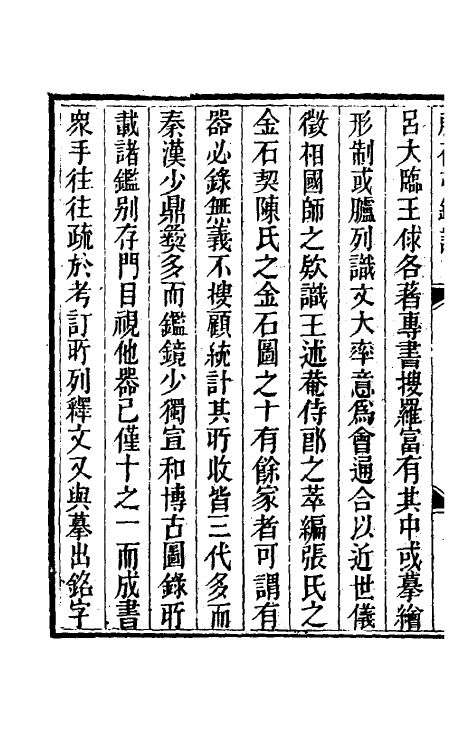 呂大臨王俅各著專書搜羅富有其中或摹繪
形制或臚列識文大率意爲會通合以近世儀
徵相國師之欵識王述菴侍郎之萃編張氏之
金石契陳氏之金石圖之十有餘家者可謂有
器必錄無義不搜顧統計其所收皆三代多而
秦漢少鼎彝多而鑑鏡少獨宣和博古圖錄所
載諸鑑別存門目視他器已僅十之一而成書
衆手往往疏於考訂所列釋文又與摹出銘字